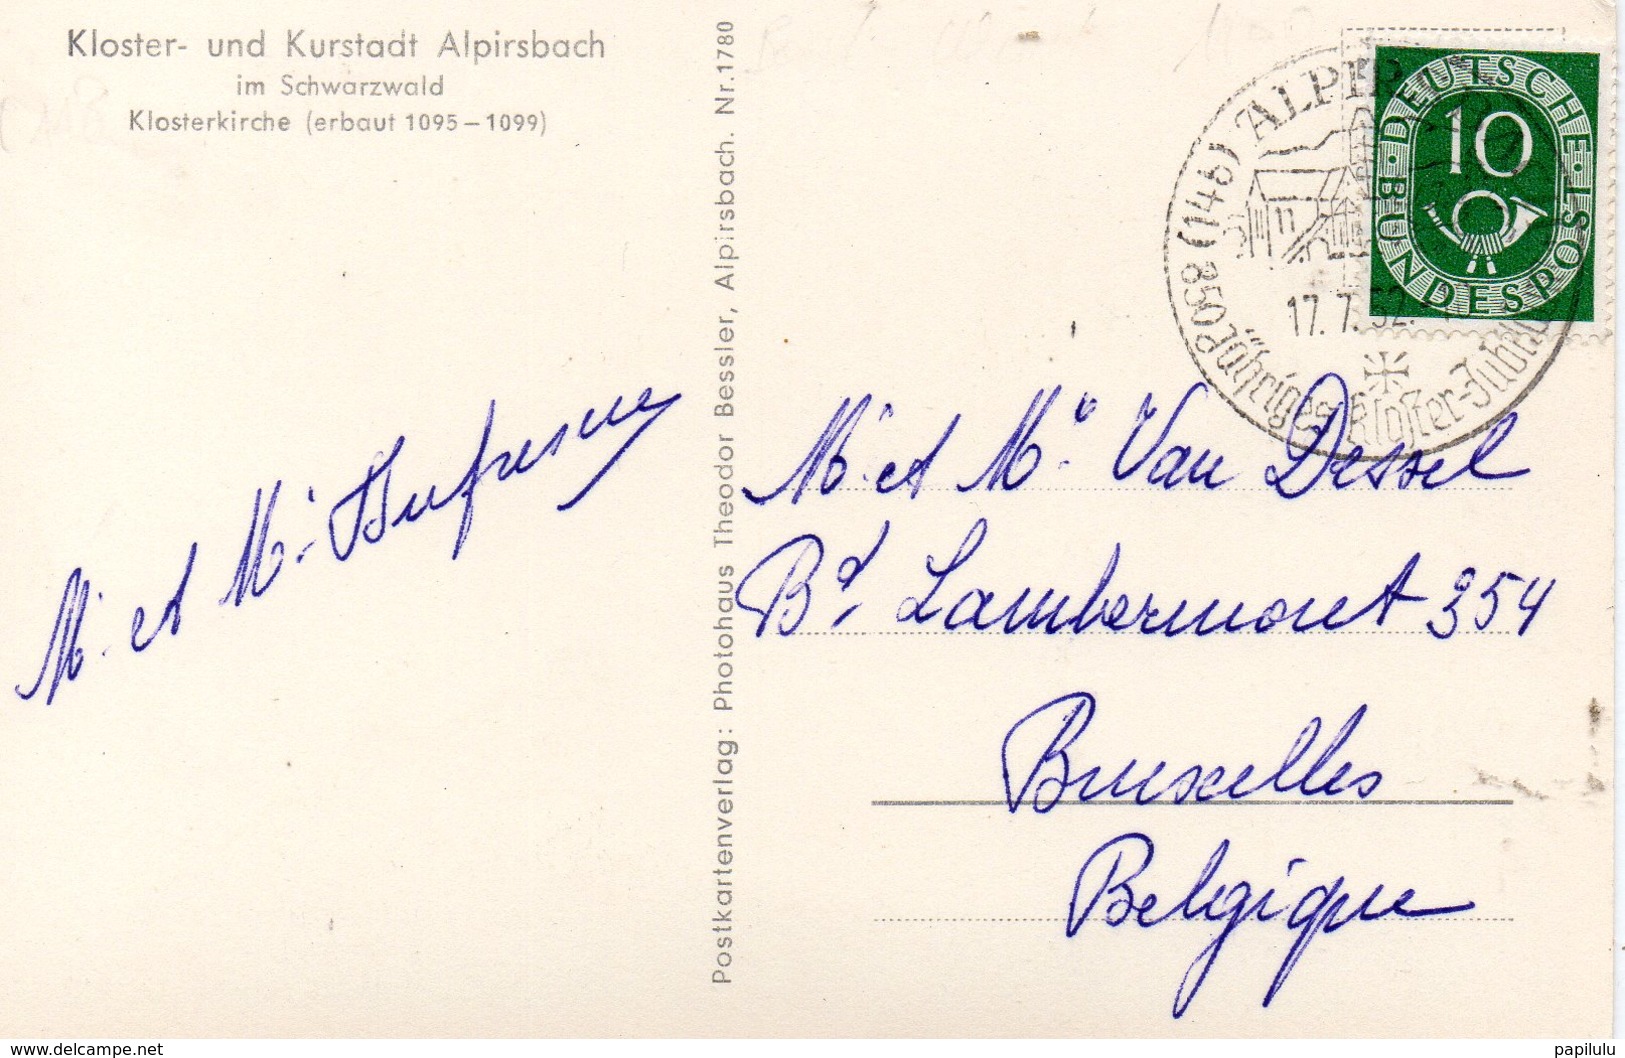 Kloster- und Kurstadt Alpirsbach
im Schwarzwald
Klosterkirche (erbaut 1095 – 1099)
M. et Mᵉ. Dufresne
Postkartenverlag: Photohaus Theodor Bessler, Alpirsbach. Nr. 1780
(14b) ALPIRSBACH
17. 7. 52.
850 Jähriges Kloster-Jubil
DEUTSCHE BUNDESPOST
10
M. et Mᵉ. Van Dessel
Bd. Lambermont 354
Bruxelles
Belgique
www.delcampe.net
papilulu